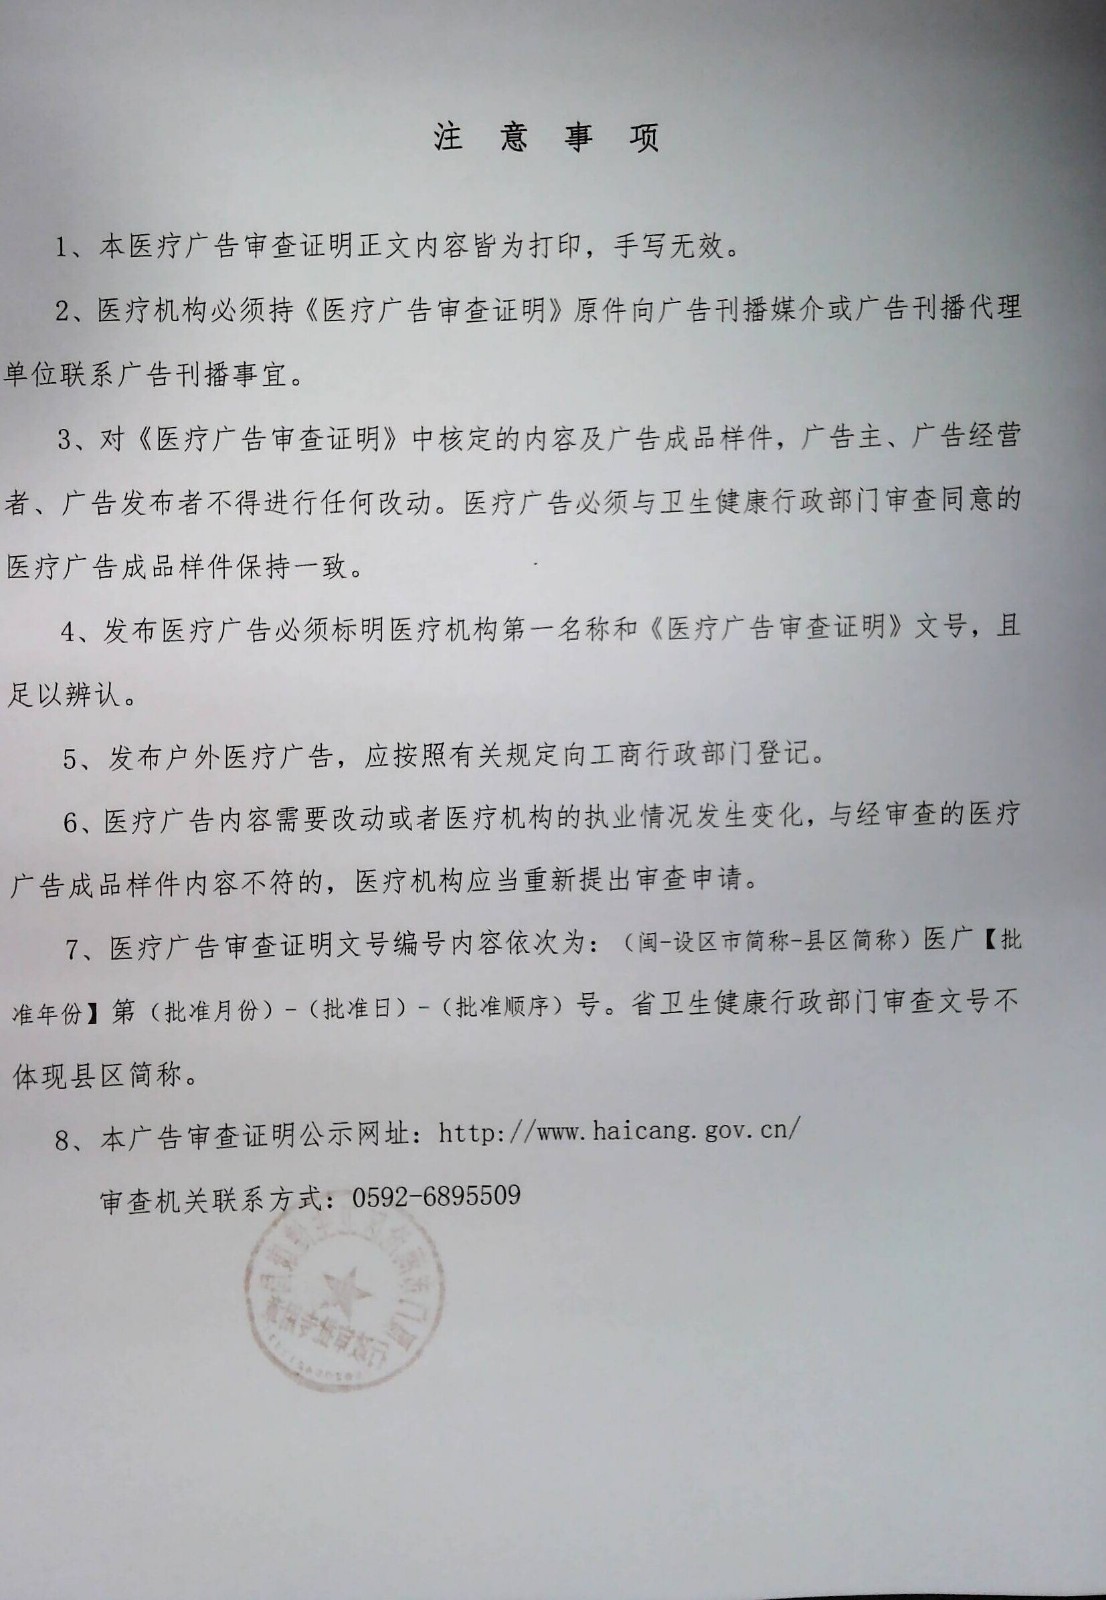 注意事项
1、本医疗广告审查证明正文内容皆为打印，手写无效。
2、医疗机构必须持《医疗广告审查证明》原件向广告刊播媒介或广告刊播代理
单位联系广告刊播事宜。
3、对《医疗广告审查证明》中核定的内容及广告成品样件，广告主、广告经营
者、广告发布者不得进行任何改动。医疗广告必须与卫生健康行政部门审查同意的
医疗广告成品样件保持一致。
4、发布医疗广告必须标明医疗机构第一名称和《医疗广告审查证明》文号，且
足以辨认。
5、发布户外医疗广告，应按照有关规定向工商行政部门登记。
6、医疗广告内容需要改动或者医疗机构的执业情况发生变化，与经审查的医疗
广告成品样件内容不符的，医疗机构应当重新提出审查申请。
7、医疗广告审查证明文号编号内容依次为：（闽-设区市简称-县区简称）医广【批
准年份】第（批准月份）-（批准日）-（批准顺序）号。省卫生健康行政部门审查文号不
体现县区简称。
8、本广告审查证明公示网址：http://www.haicang.gov.cn/
审查机关联系方式：0592-6895509